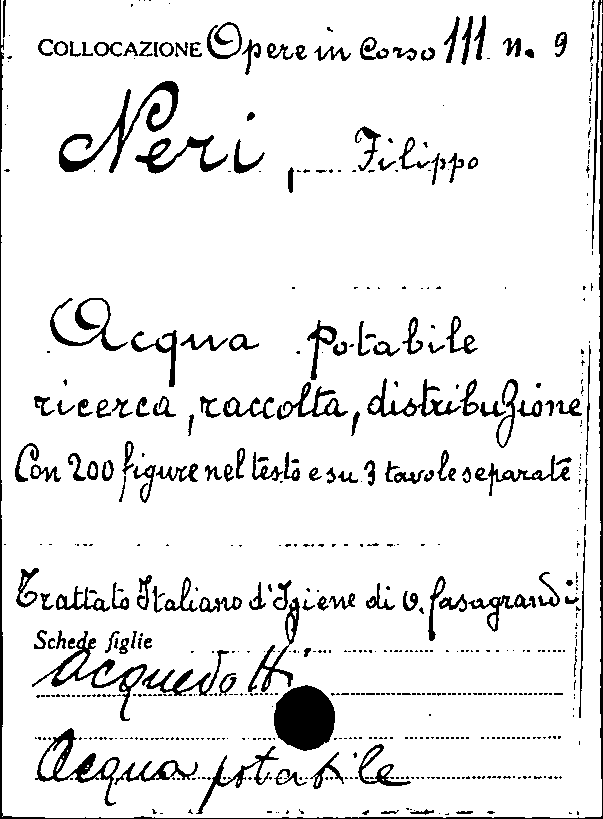 COLLOCAZIONE Opere in corso III n. 9
Neri, Filippo
Acqua potabile
ricerca, raccolta, distribuzione
Con 200 figure nel testo e su 3 tavole separate
Trattato Italiano d'Igiene di O. Casagrandi
Schede figlie
Acquedotti
Acqua potabile